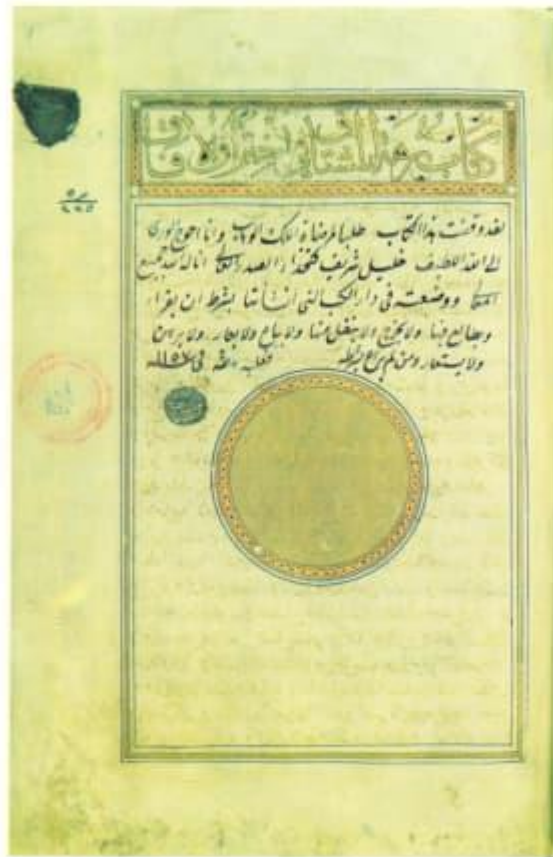 كتاب نزهة المشتاق في اختراق الآفاق
لقد وقفت هذا الكتاب طلبا لمرضاة الملك الوهاب وانا احوج الورى
الى الله اللطيف خليل شريف كتخداء الصدر العالى اناله الله جميع
ووضعته فى دار الكتب التى انشأتها بشرط ان يقرأ
ويطالع فيها ولا يخرج ولا ينقل منها ولا يباع ولا يعار ولا يرهن
ولا يستعار ومن لم يراع شرطه فعليه فى